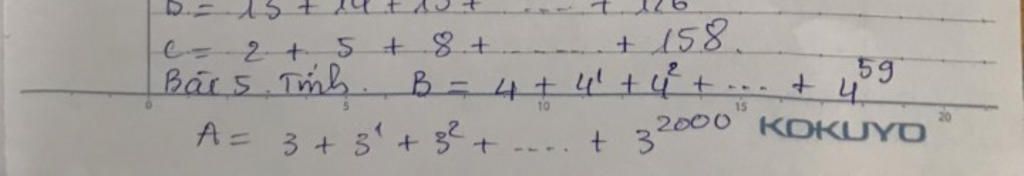 B = 13 + 14 + 15 + ..... + 176
C = 2 + 5 + 8 + ........ + 158.
Bài 5. Tính. B = 4 + 4¹ + 4² + .... + 4⁵⁹
0 5 10 15 20
A = 3 + 3¹ + 3² + ..... + 3²⁰⁰⁰ KOKUYO